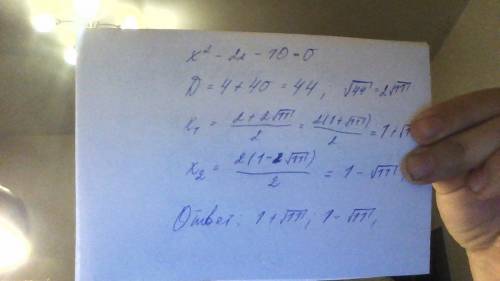 x² - 2x - 10 = 0
D = 4 + 40 = 44, √44 = 2√11
x₁ = (2 + 2√11)/2 = 2(1 + √11)/2 = 1 + √11
x₂ = 2(1 - 2√11)/2 = 1 - √11
Ответ: 1 + √11; 1 - √11,